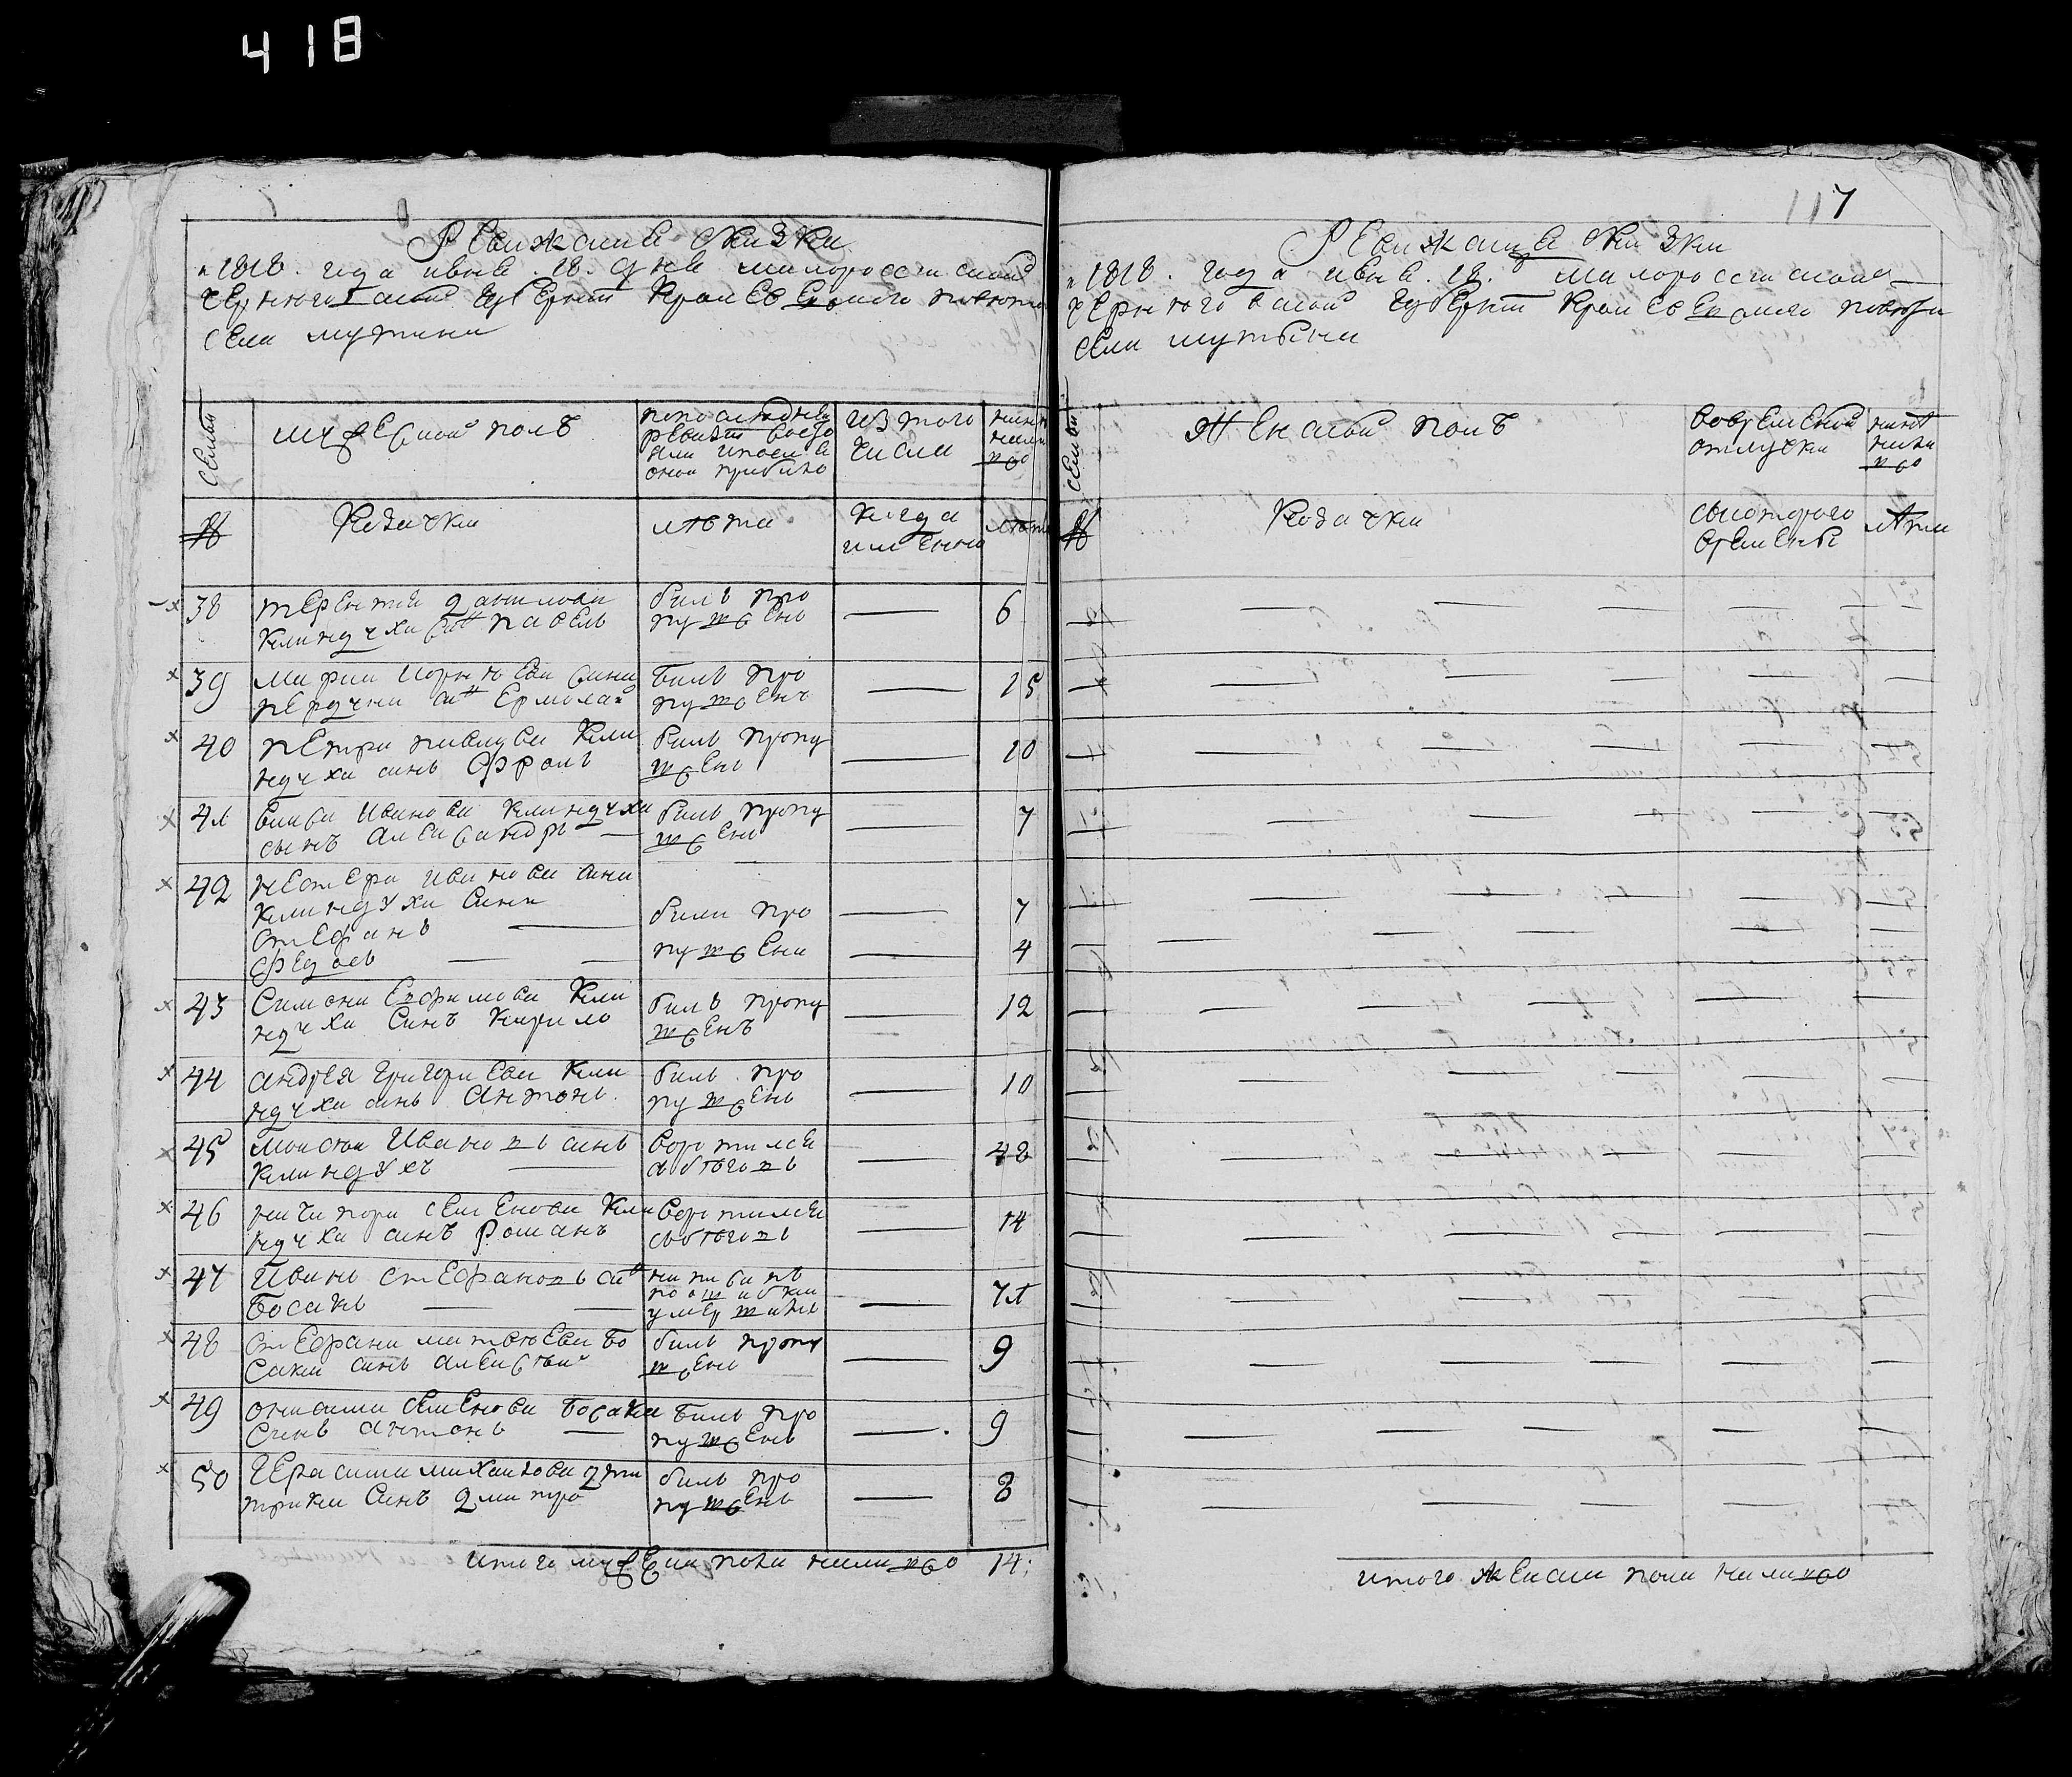 418
Ревижашя Скизки
1818. года июня .18. дня малороссийской
Черниговской Губернии Кролевецкого повета
села мутина
семьи
мужеской полъ
по последней
ревизии состо
яли и после
оной прибыло
Из того
числа
ныне
нали
цо
№
Козачки
лета
когда
именно
лета
38
терентия данилова
клиндуха сынъ павелъ
билъ про
пущенъ
6
39
ивана
сынъ Ермолай
Билъ про
пущенъ
15
40
петра павлова Кли
ндуха синъ Фролъ
билъ пропу
щенъ
10
41
савы Иванова клиндуха
сынъ Александръ
билъ пропу
щенъ
7
42
нестера иванова сина
клиндуха сини
стефанъ
федосъ
били про
пущени
7
4
43
Симона Ефимова Кли
ндуха Синъ Кирило
билъ пропу
щенъ
12
44
андрея григориева Кли
ндуха синъ Антонъ
билъ про
пущенъ
10
45
Моисей Ивановъ синъ
клиндухъ
воротился
с беговъ
48
46
ничипора семенова Кли
ндуха синъ Романъ
воротился
с беговъ
14
47
Иванъ Стефановъ синъ
Босакъ
написанъ
по ошибки
умершимъ
71
48
Стефана матвеева Бо
сака синъ алексей
билъ пропу
щенъ
9
49
онисима семенова Босака
Синъ антонъ
Билъ про
пущенъ
9
50
Герасима михайлова дми
трика Синъ дмитро
билъ про
пущенъ
8
итого мужеска пола налицо 14:
117
Ревижаця Скизки
1818. года июня .18. д малороссийской
Черниговской Губернии Кролевецкого повета
села мутина
семьи
Женской полъ
во временной
отлучки
ныне
нали
цо
№
Козачки
с которого
времени
лета
итого женска пола налицо